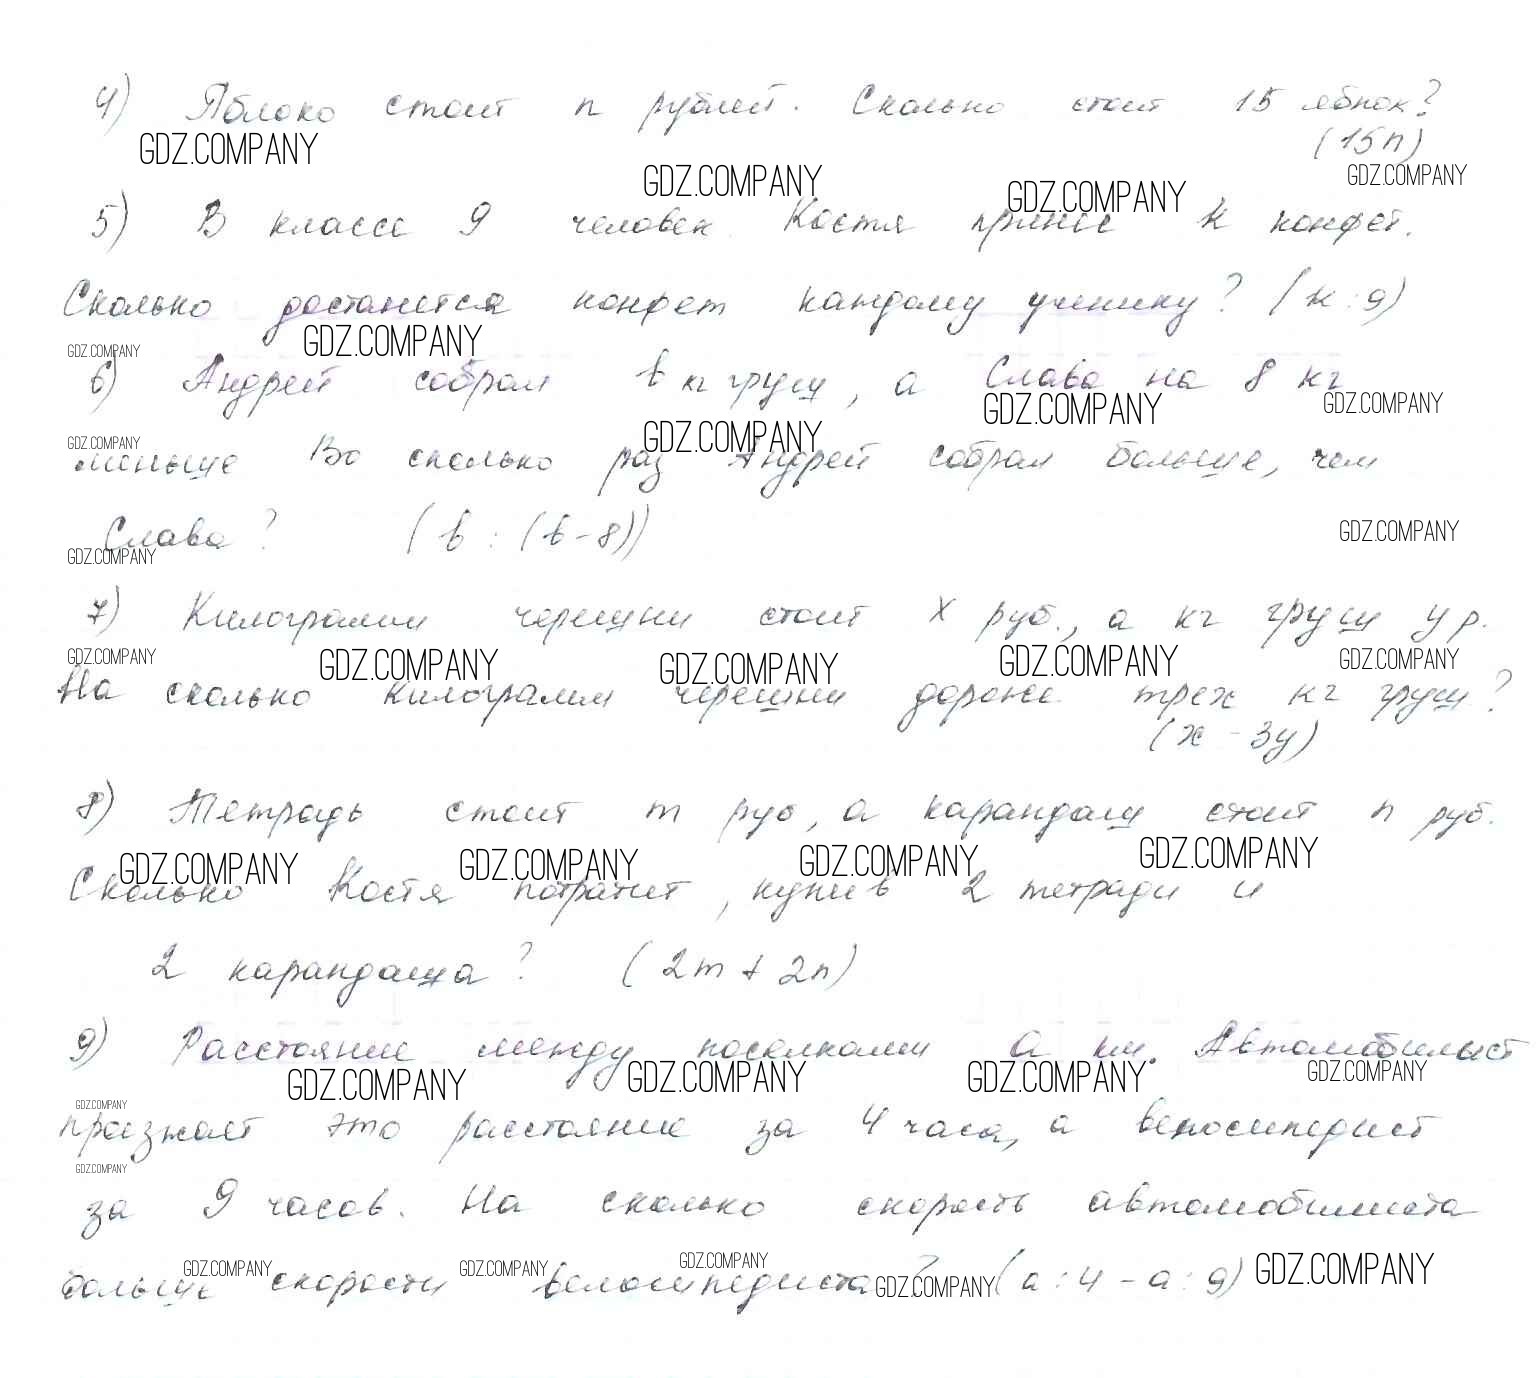 4) Яблоко стоит n рублей. Сколько стоит 15 яблок?
(15n)
GDZ.COMPANY
GDZ.COMPANY GDZ.COMPANY GDZ.COMPANY
5) В классе 9 человек. Костя принес k конфет.
Сколько достанется конфет каждому ученику? (k : 9)
GDZ.COMPANY GDZ.COMPANY
6) Андрей собрал b кг груш, а Слава на 8 кг
GDZ.COMPANY GDZ.COMPANY GDZ.COMPANY GDZ.COMPANY
меньше Во сколько раз Андрей собрал больше, чем
Слава? (b : (b - 8))
GDZ.COMPANY GDZ.COMPANY
7) Килограмм черешни стоит x руб., а кг груш y р.
GDZ.COMPANY GDZ.COMPANY GDZ.COMPANY GDZ.COMPANY GDZ.COMPANY
На сколько килограмм черешни дороже трех кг груш?
(x - 3y)
8) Тетрадь стоит m руб, а карандаш стоит n руб.
GDZ.COMPANY GDZ.COMPANY GDZ.COMPANY GDZ.COMPANY
Сколько Костя потратит, купив 2 тетради и
2 карандаша? (2m + 2n)
9) Расстояние между поселками a км. Автомобилист
GDZ.COMPANY GDZ.COMPANY GDZ.COMPANY GDZ.COMPANY GDZ.COMPANY
проезжает это расстояние за 4 часа, а велосипедист
GDZ.COMPANY
за 9 часов. На сколько скорость автомобилиста
больше скорости велосипедиста? (a : 4 - a : 9)
GDZ.COMPANY GDZ.COMPANY GDZ.COMPANY GDZ.COMPANY GDZ.COMPANY